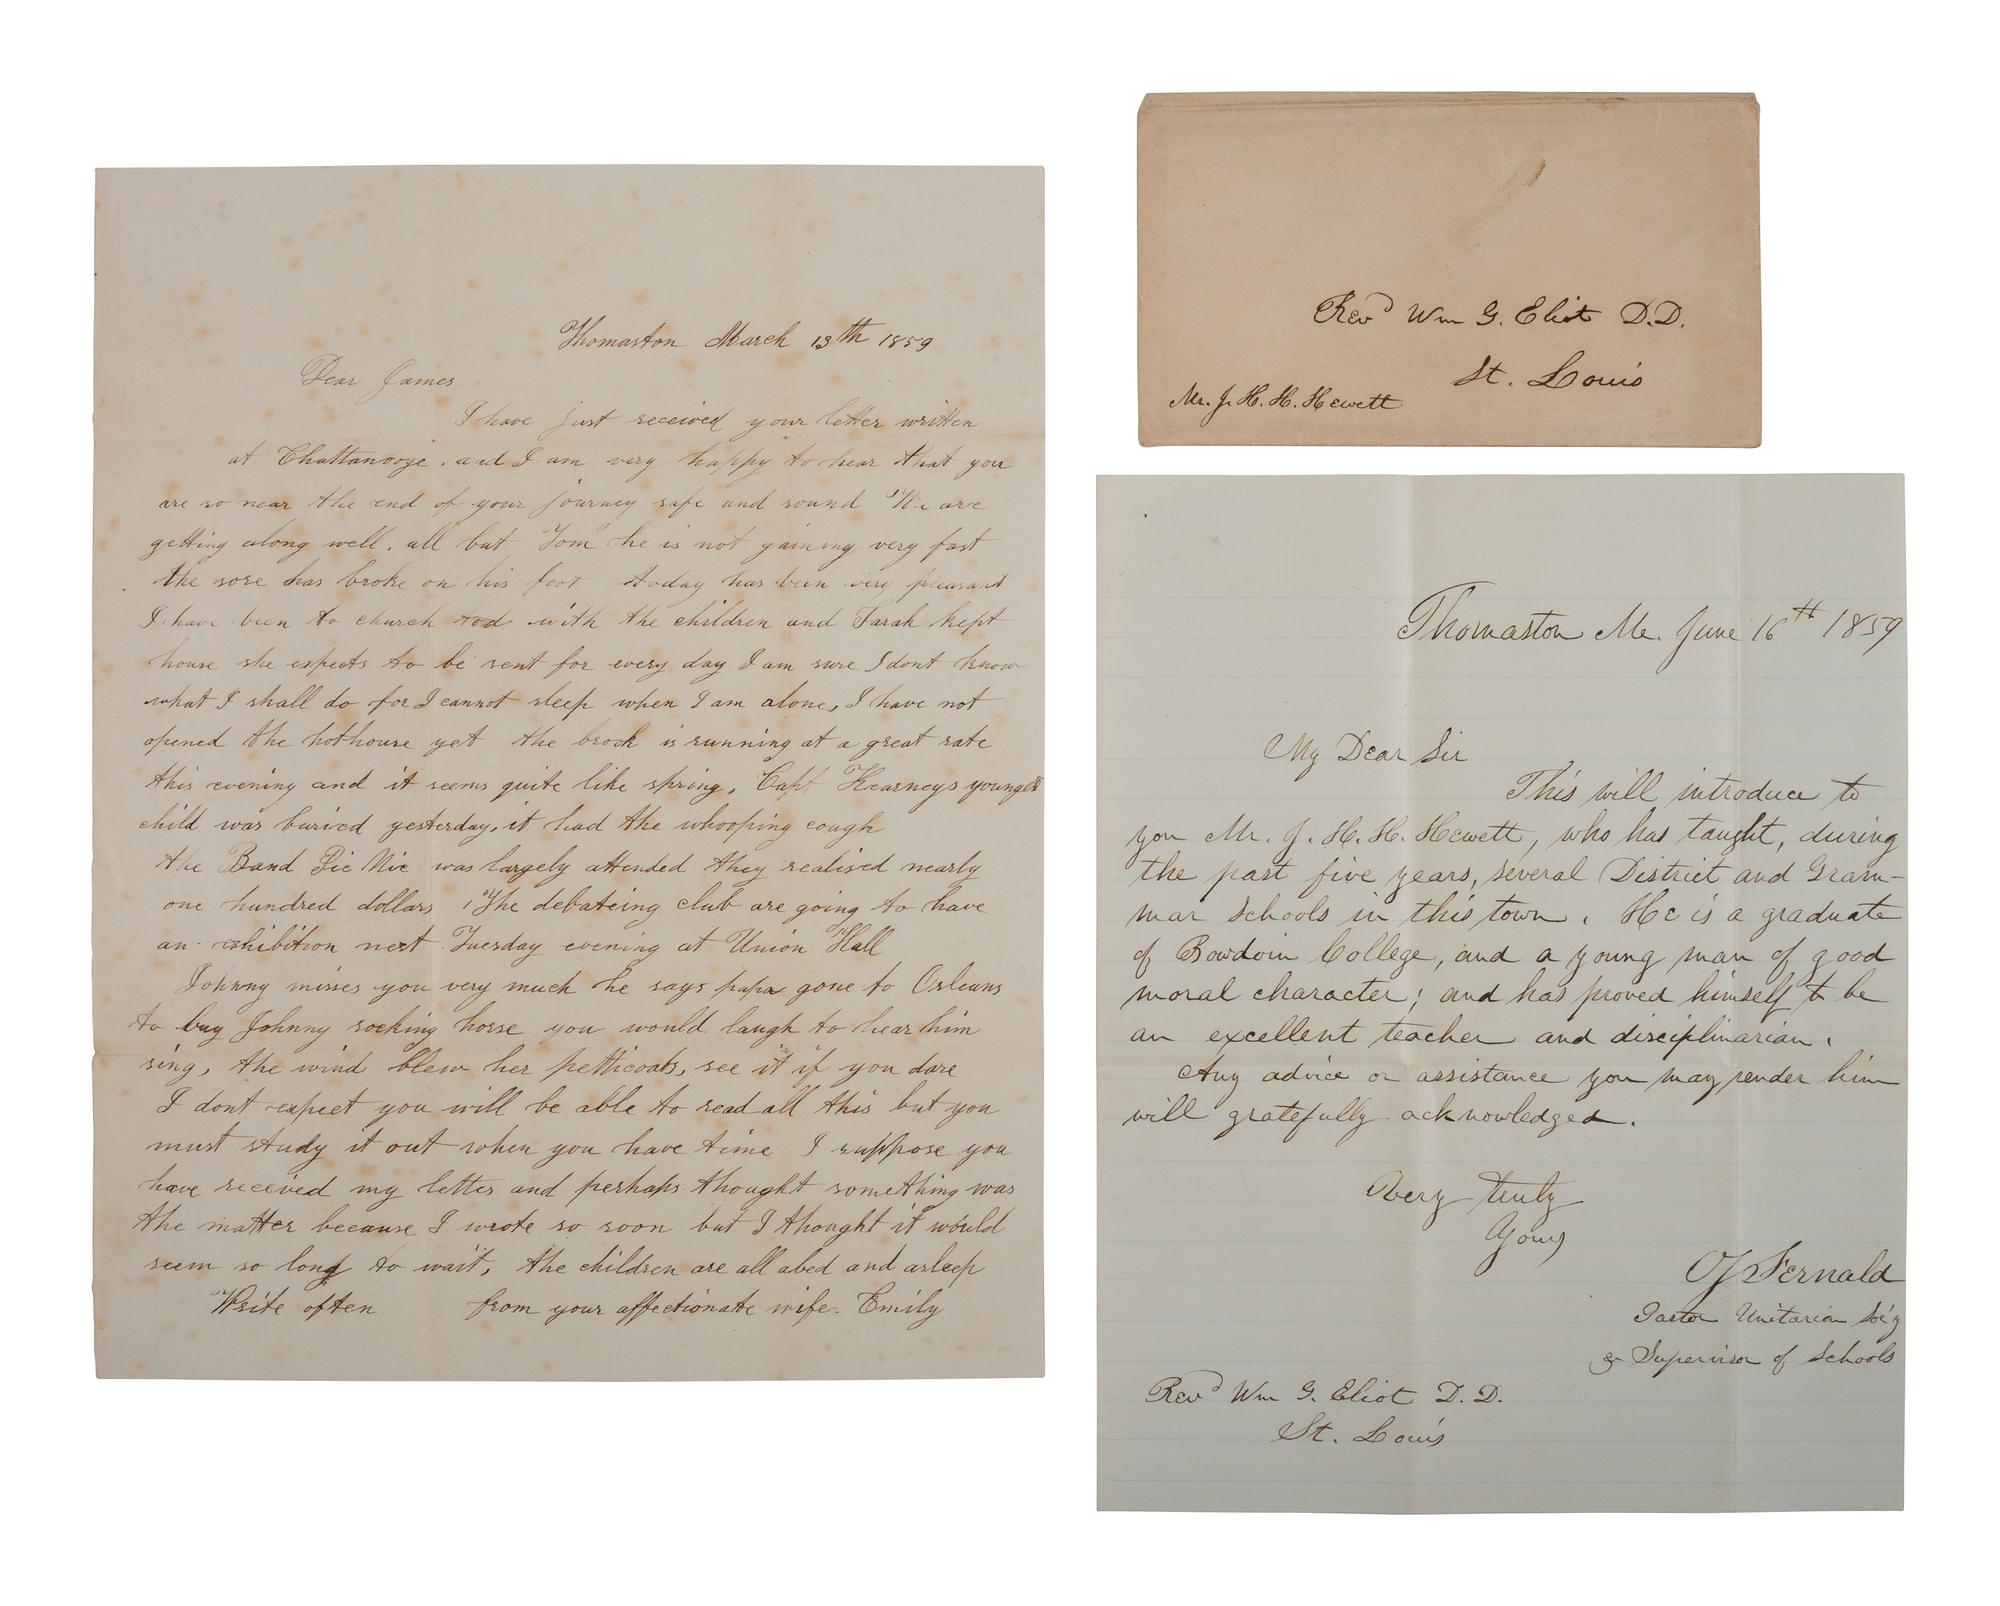 Thomaston March 13th 1859
Dear James
I have just received your letter written
at Chattanooge. and I am very happy to hear that you
are so near the end of your journey safe and sound We are
getting along well. all but Tom he is not gaining very fast
the sore has broke on his foot today has been very pleasant
I have been to church tod with the children and Sarah kept
house she expects to be sent for every day I am sure I dont know
what I shall do for I cannot sleep when I am alone, I have not
opened the hothouse yet the brook is running at a great rate
this evening and it seems quite like spring, Capt Kearneys youngest
child was buried yesterday, it had the whooping cough
the Band Pic Nic was largely attended they realised nearly
one hundred dollars The debateing club are going to have
an exhibition next Tuesday evening at Union Hall
Johnny misses you very much he says papa gone to Orleans
to buy Johnny rocking horse you would laugh to hear him
sing, the wind blew her petticoats, see it if you dare
I dont expect you will be able to read all this but you
must study it out when you have time I suppose you
have received my letter and perhaps thought something was
the matter because I wrote so soon but I thought it would
seem so long to wait, the children are all abed and asleep
Write often from your affectionate wife. Emily
Revd Wm G. Eliot D.D.
St. Louis
Mr. J. H. H. Hewett
Thomaston Me. June 16th 1859
My Dear Sir
This will introduce to
you Mr. J. H. H. Hewett, who has taught, during
the past five years, several District and Gram-
mar Schools in this town. He is a graduate
of Bowdoin College, and a young man of good
moral character; and has proved himself to be
an excellent teacher and disciplinarian.
Any advice or assistance you may render him
will gratefully acknowledged.
Very truly
Yours
OJ Fernald
Pastor Unitarian Soc'y
& Supervisor of Schools
Revd Wm G. Eliot D. D.
St. Louis